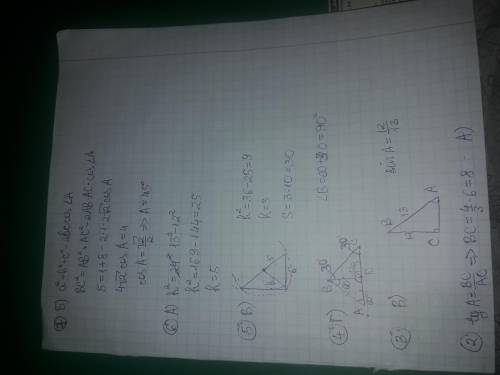 ⑦ Б) a²=b²+c²-2bc cos ∠A
BC²=AB²+AC²-2AB·AC·cos∠A
5=1+8-2·1·2√2 cos A
4√2 cos A=4
cos A=√2/2 ⇒ A=45°
⑥ А) h²=13²-12²
h²=169-144=25
h=5
⑤ В)
h²=36-25=9
h=3
S=3·10=30
④ Г)
B
30°
30°
A
60°
③ В)
B
13
H
C
A
sin A=12/13
② tg A=BC/AC ⇒ BC=4/3·6=8 - А)